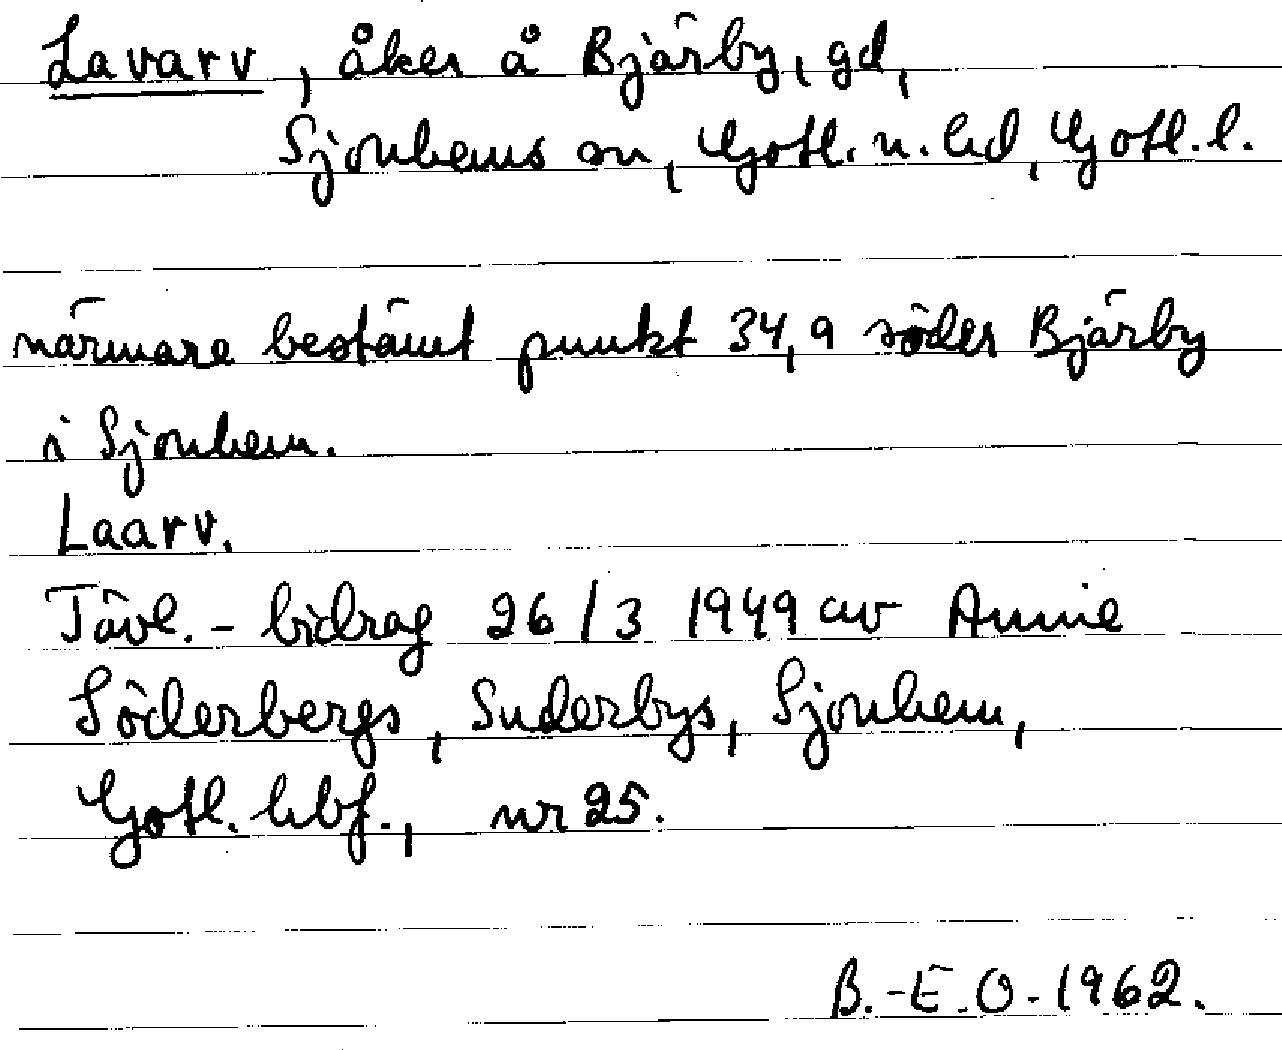 Lavarv, åker å Bjärby, gd,
Sjonhems sn, Gotl. n. hd, Gotl. l.
närmare bestämt punkt 34,9 söder Bjärby
i Sjonhem.
Laarv.
Tävl.- bidrag 26/3 1949 av Annie
Söderbergs, Suderbys, Sjonhem,
Gotl. hbf., nr 25.
B.-E.O-1962.